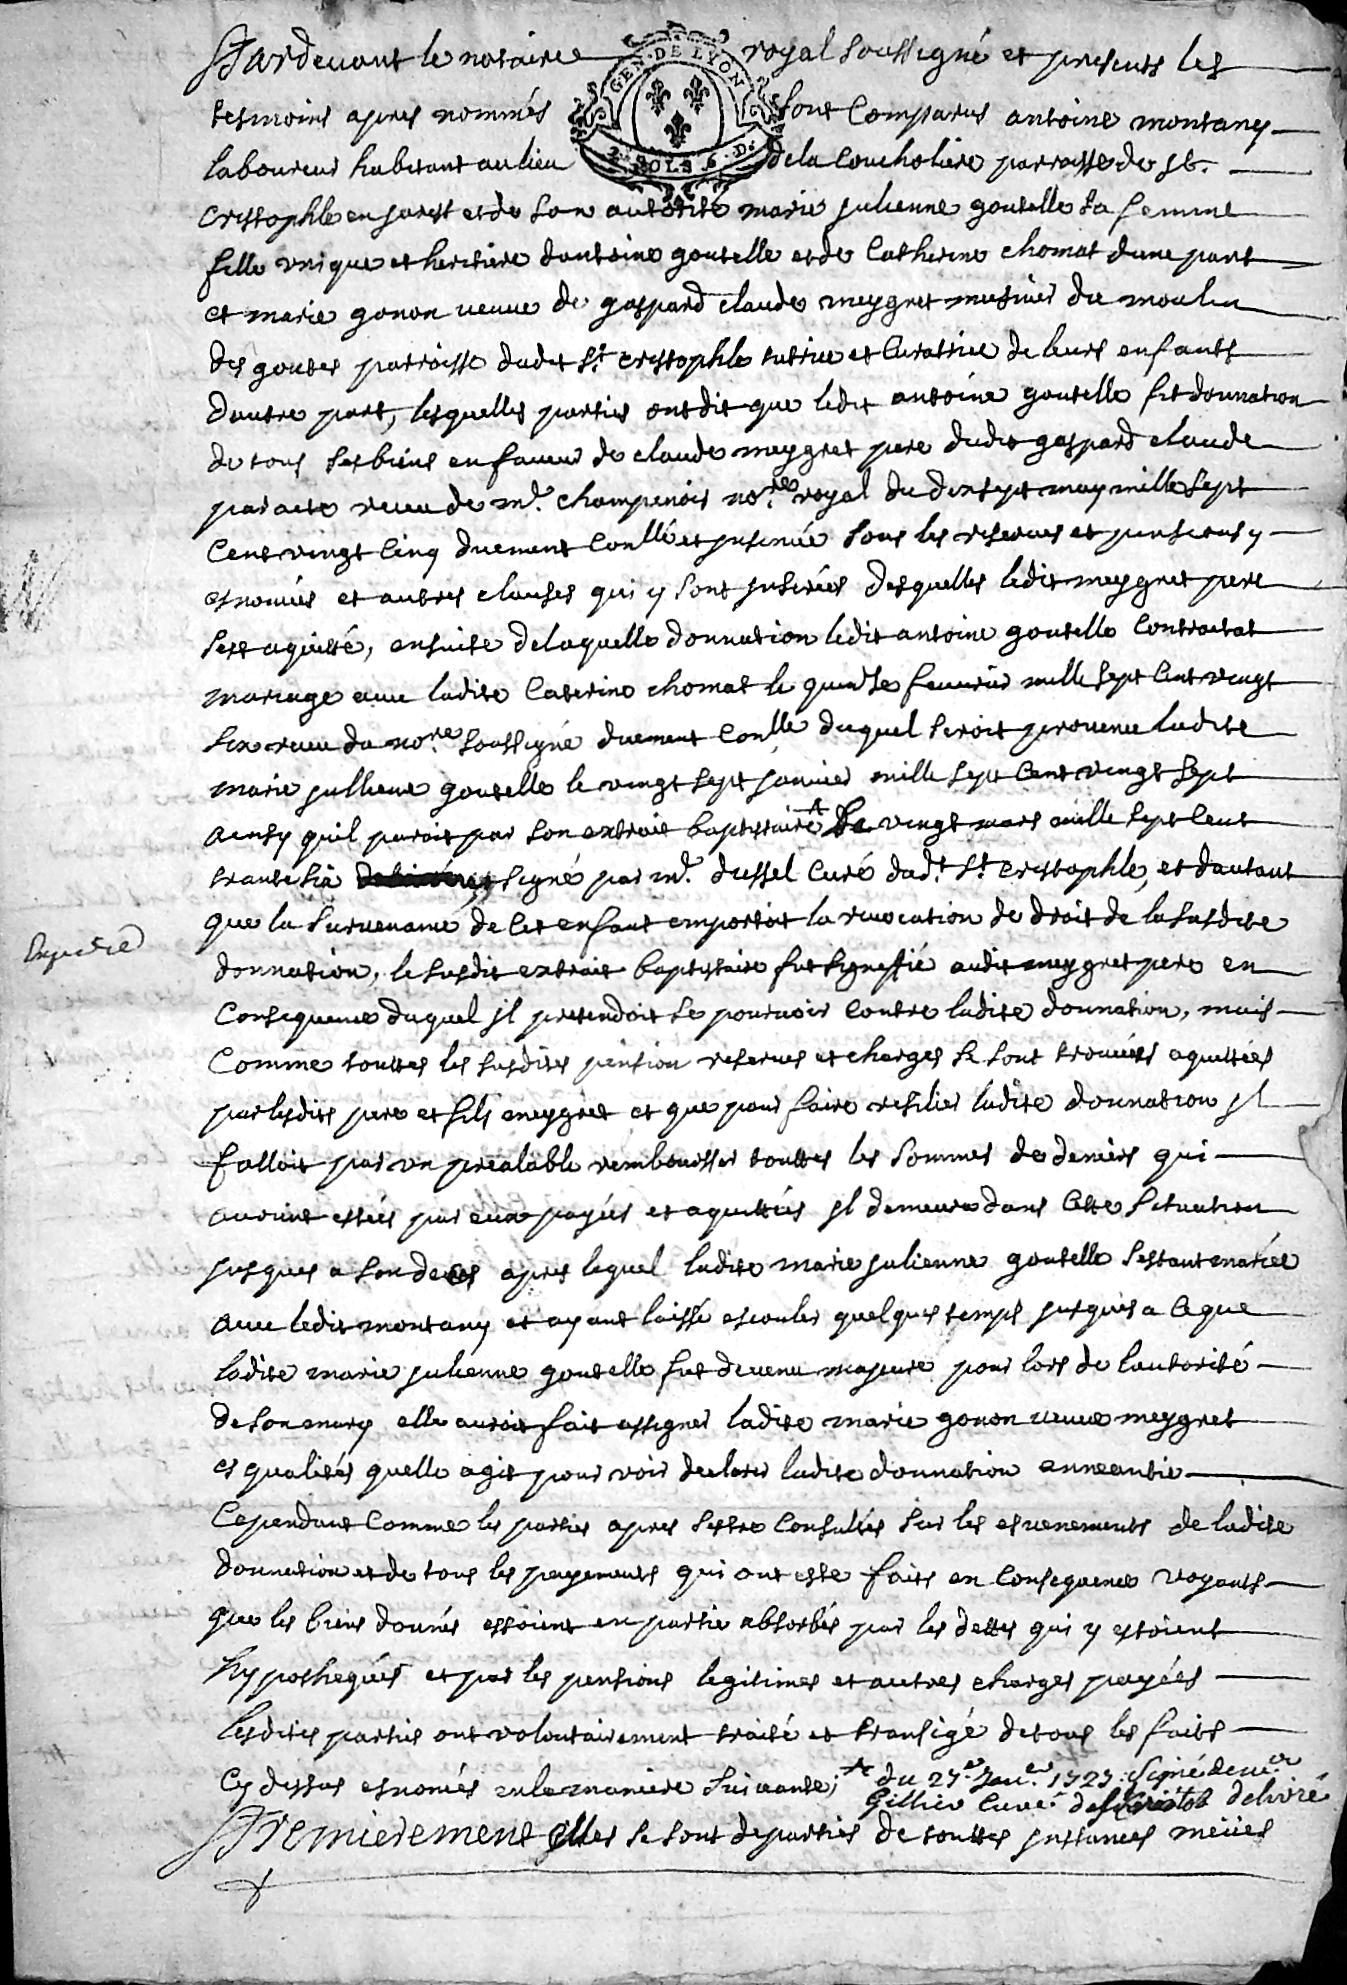 Pardevant le notaire royal soussigné et presents les
tesmoins apres nommés sont comparus antoine montany
GEN · DE LYON
2 · SOLS · 6 · Ds
laboureur habitant au lieu de la Coucholiere parroisse de St.
Cristophle en jarest et de son autorité marie julienne goutelle sa femme
fille unique et heritiere dantoine goutelle et de Catherine chomat dune part
et marie gonon veuve de gaspard claude meygret musnier du moulin
des goutes parroisse dudit St. cristophle tutrice et Curatrice de leurs enfants
dautre part, lesquelles parties ont dit que ledit antoine goutelle fit donnation
de tous ses biens en faveur de claude meygret pere dudit gaspard claude
par acte receu de mr. champenois nore. royal du dix sept may mille sept
Cent vingt Cinq duement Conllé et jnsinué sous les reserves et pensions y
esnoncés et autres clauses qui y sont jnserées desquelles ledit meygret pere
sest aquitté, ensuite de laquelle donnation ledit antoine goutelle Contractat
mariage avec ladite Caterine chomat le quinze fevrier mille sept Cent vingt
six receu du nore. soussigné duement Conllé duquel seroit provenue ladite
marie jullienne goutelle le vingt sept janvier mille sept Cent vingt sept
ainsy quil paroit par son extrait baptistaire le vingt mars mille sept Cent
trante six signé par mr. dussel Curé dudt. St. cristophle, et dautant
que la survenance de Cet enfant emportoit la revocation de droit de la susdite
Expedié
donnation, le susdit extrait baptistaire fut signiffié audit meygret pere en
Consequence duquel jl pretendoit se pourvoir Contre ladite donnation, mais
Comme touttes les susdites pension reserves et charges se sont trouvées aquittées
par lesdits pere et fils meygret et que pour faire resilier ladite donnation jl
falloit par un prealable rembourser touttes les sommes de deniers qui
avoient estées par eux payées et aquittées jl demeura dans Cette situation
jusques a son deces apres lequel ladite marie julienne goutelle sestant mariée
avec ledit montany et ayant laissé escouler quelques temps jusques a Ce que
ladite marie julienne goutelle fut devenu majeure pour lors de lautorité
de son mary elle auroit fait assigner ladite marie gonon veuve meygret
es qualités quelle agit pour voir declarer ladite donnation anneantie
Cependant Comme les parties apres sestre Consultés sur les esvenements de ladite
donnation et de tous les payements qui ont esté faits en Consequence voyants
que les biens donnés estoient en partie absorbés par les dettes qui y estoient
hypotheqées et par les pensions legitimes et autres charges payées
lesdites parties ont volontairement traité et transigé de tous les faits
Cy dessus esnoncés en la maniere suivante;
du 27e. Janer. 1727. signé de mr.
Gillier Curé de St Cristo delivré
Premierement elles se sont departies de touttes jnstances meües